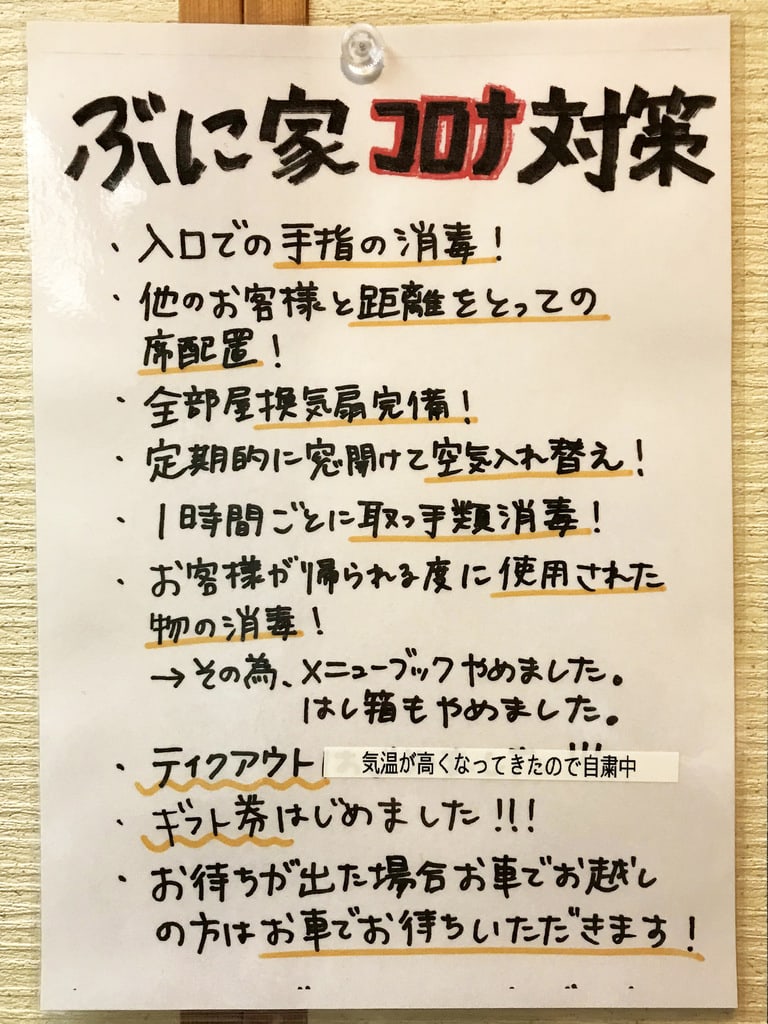 ぶに家コロナ対策
・入口での手指の消毒！
・他のお客様と距離をとっての
席配置！
・全部屋換気扇完備！
・定期的に窓開けて空気入れ替え！
・1時間ごとに取っ手類消毒！
・お客様が帰られる度に使用された
物の消毒！
→その為、メニューブックやめました。
はし箱もやめました。
・テイクアウト 気温が高くなってきたので自粛中
・ギフト券はじめました！！！
・お待ちが出た場合お車でお越し
の方はお車でお待ちいただきます！